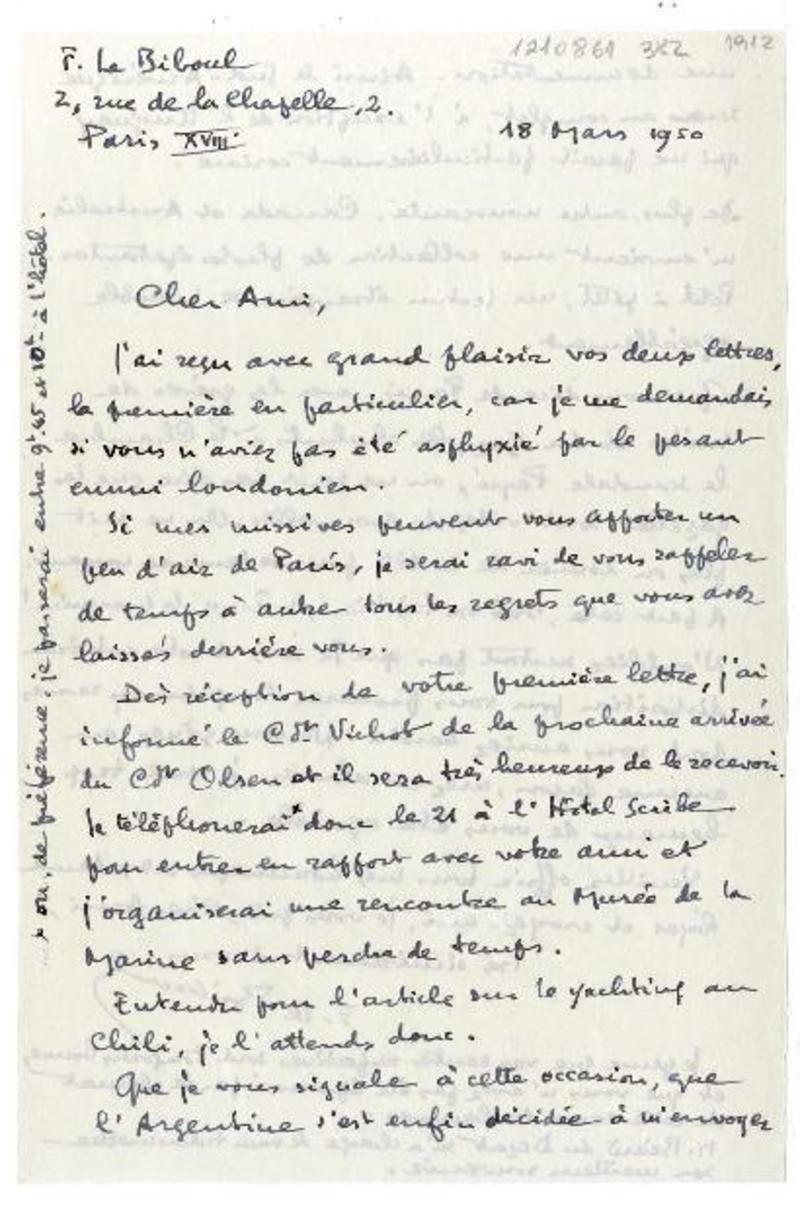 1210861 382 1912
F. Le Biboul
2, rue de la Chapelle, 2.
Paris XVIII
18 Mars 1950
Cher Ami,
J'ai reçu avec grand plaisir vos deux lettres,
la première en particulier, car je me demandais
si vous n'aviez pas été asphyxié par le pesant
ennui londonien.
Si mes missives peuvent vous apporter un
peu d'air de Paris, je serai ravi de vous rappeler
de temps à autre tous les regrets que vous avez
laissés derrière vous.
Dès réception de votre première lettre, j'ai
informé le Cdt Vichot de la prochaine arrivée
du Cdt Olsen et il sera très heureux de le recevoir.
Je téléphonerai* donc le 21 à l'Hotel Scribe
pour entrer en rapport avec votre ami et
j'organiserai une rencontre au Musée de la
Marine sans perdre de temps.
Entendu pour l'article sur le yachting au
Chili, je l'attends donc.
Que je vous signale à cette occasion, que
l'Argentine s'est enfin décidée à m'envoyer
* ou, de préférence, je passerai entre 9h.45 et 10h à l'hôtel.